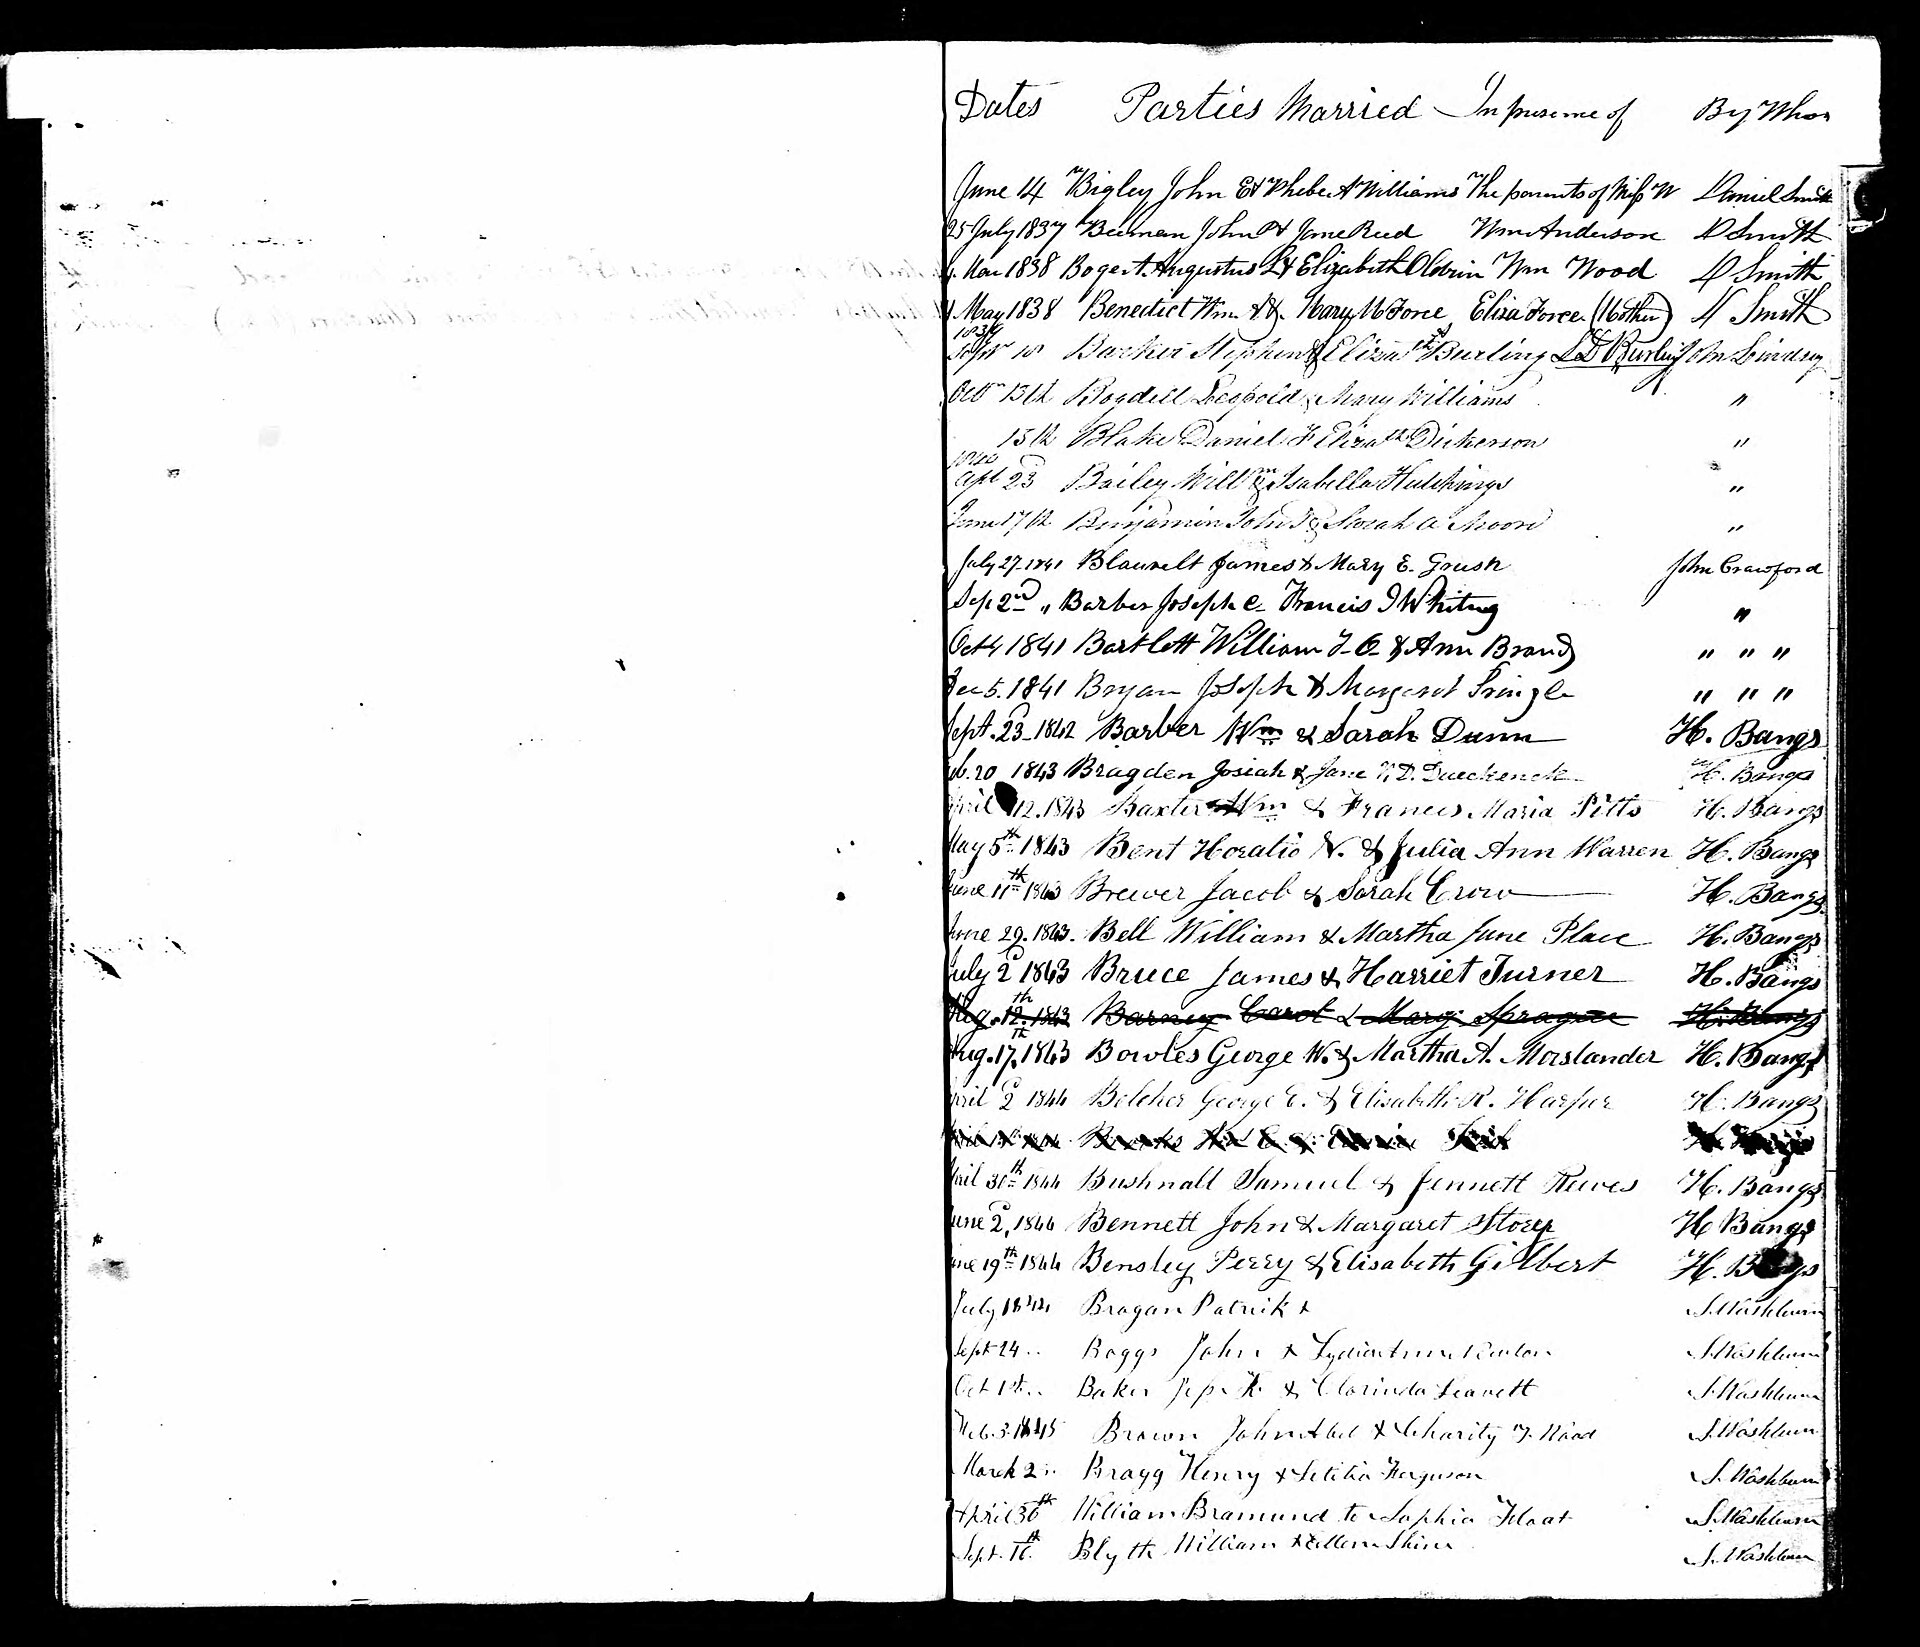 Dates Parties Married In presence of By Whom
June 14 Bigley John E & Phebe A Williams The parents of Miss W Daniel Smith
25 July 1837 Beeman John & Jane Reed Wm Anderson D Smith
Mar 1838 Augustus & Elizabeth Wm Wood D Smith
May 1838 Benedict Wm. & Mary M Force Eliza Force (Mother) D Smith
1839
Sept 10 Barker Stephen & Eliza Burling Burling John Lindsey
Oct 13th Leopold & Mary Williams "
15th Blake Daniel & Elizath Dickerson "
1840
Apl 23 Bailey Willm & Isabella Hutchings "
June 17th Benjamin John & Sarah A Moore "
July 27-1841 Blauvelt James & Mary E. Grush John Crawford
Sep 2nd " Barber Joseph C- Francis J Whiting "
Oct 4 1841 Bartlett William & Ann Brand " " "
Dec 5. 1841 Bryan Joseph & Margaret Pringle " " "
Sept. 23d 1842 Barber Wm & Sarah Dunn H. Bangs
20 1843 Bragden Josiah & Jane H. Bangs
April 12. 1843 Baxter Wm & Frances Maria Pitts H. Bangs
May 5th 1843 Bent Horatio N. & Julia Ann Warren H. Bangs
June 11th 1843 Brewer Jacob & Sarah Crow H. Bangs
June 29. 1843. Bell William & Martha Jane Place H. Bangs
July 2d 1843 Bruce James & Harriet Turner H. Bangs
Aug. 12th. 1843 Barney & Mary Sprague H. Bangs
Aug. 17th, 1843 Bowles George W. & Martha A. Morslander H. Bangs
April 2d 1844 Belcher George E. & Elisabeth R. Harper H. Bangs
April 30th 1844 Bushnall Samuel & Jennett Reeves H. Bangs
June 2d, 1844 Bennett John & Margaret Storer H Bangs
June 19th 1844 Bensley Perry & Elisabeth Gilbert H. Bangs
July 1844 Brogan Patrick & S. Washburn
Sept 24 " Boggs John & Lydia Ann S. Washburn
Oct " Baker & Clorinda Leavett S. Washburn
Feb. 3. 1845 Brown John Abel & Charity T. Wood S. Washburn
March 2 " Bragg Henry & Letitia Ferguson S. Washburn
April 30th William Bramund to Sophia Float S. Washburn
Sept. 16th Blyth William & Ellen Shine S. Washburn